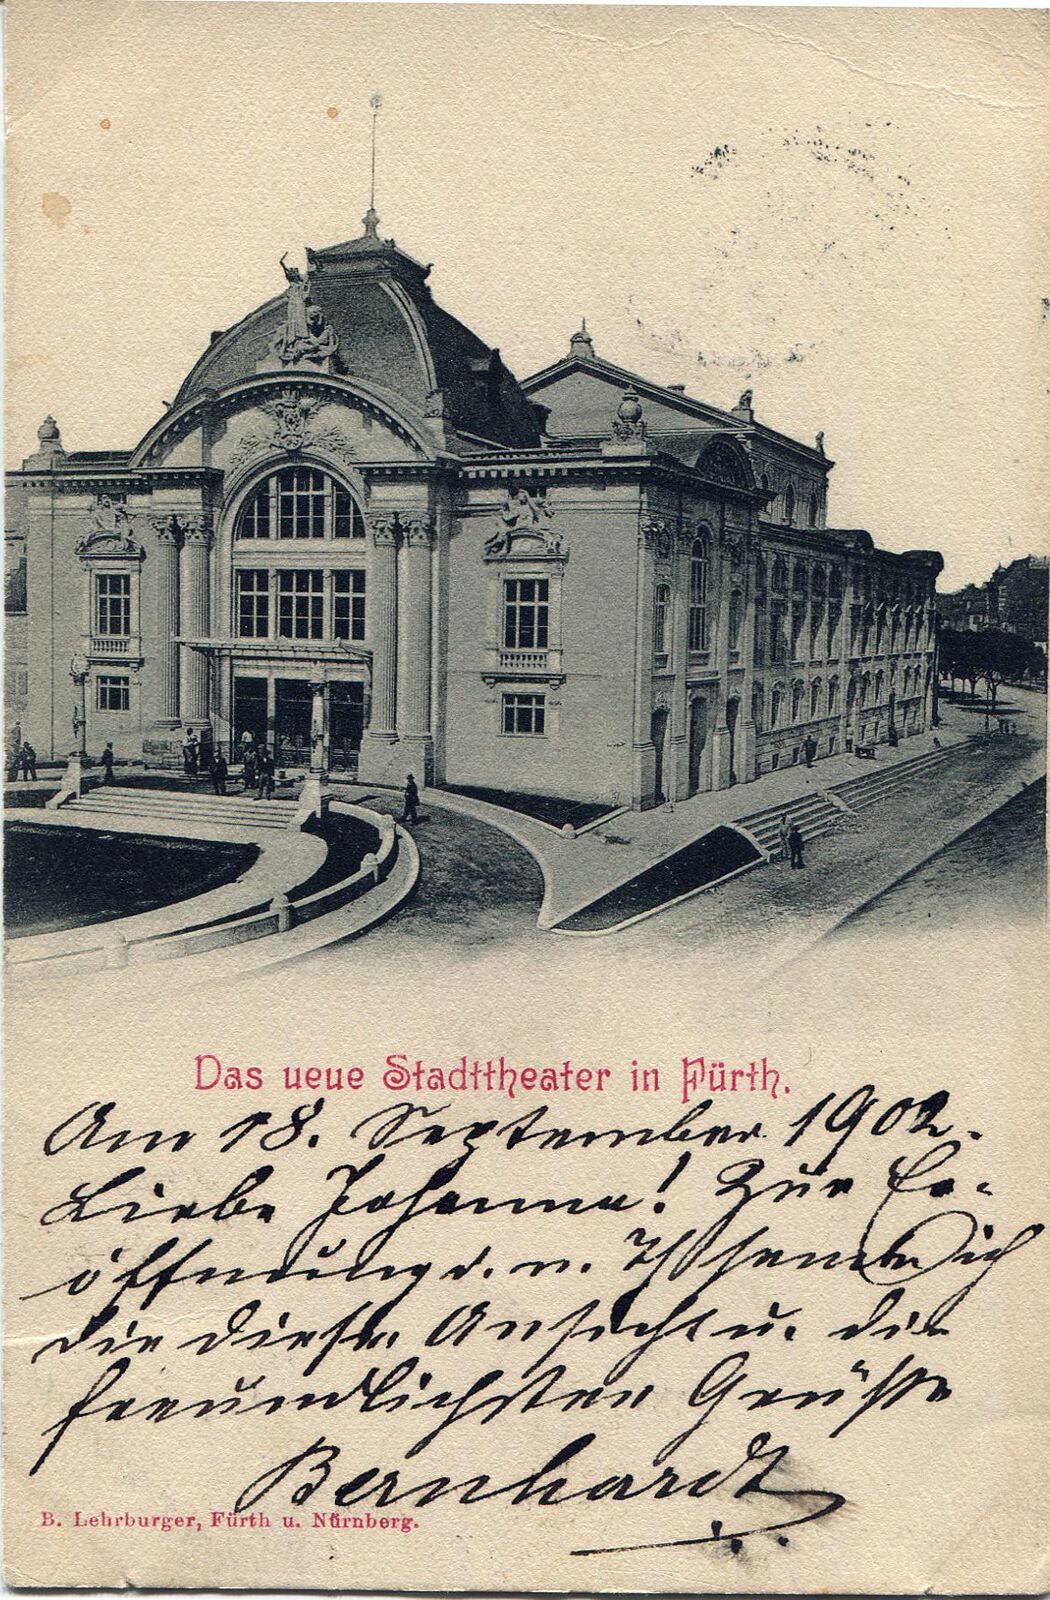 Das neue Stadttheater in Fürth.
Am 18. September 1902.
Liebe Johanna! Zur Er-
öffnung d. n. Th. sende ich
dir diese Ansicht u. die
freundlichsten Grüsse
Bernhardt
B. Lehrburger, Fürth u. Nürnberg.